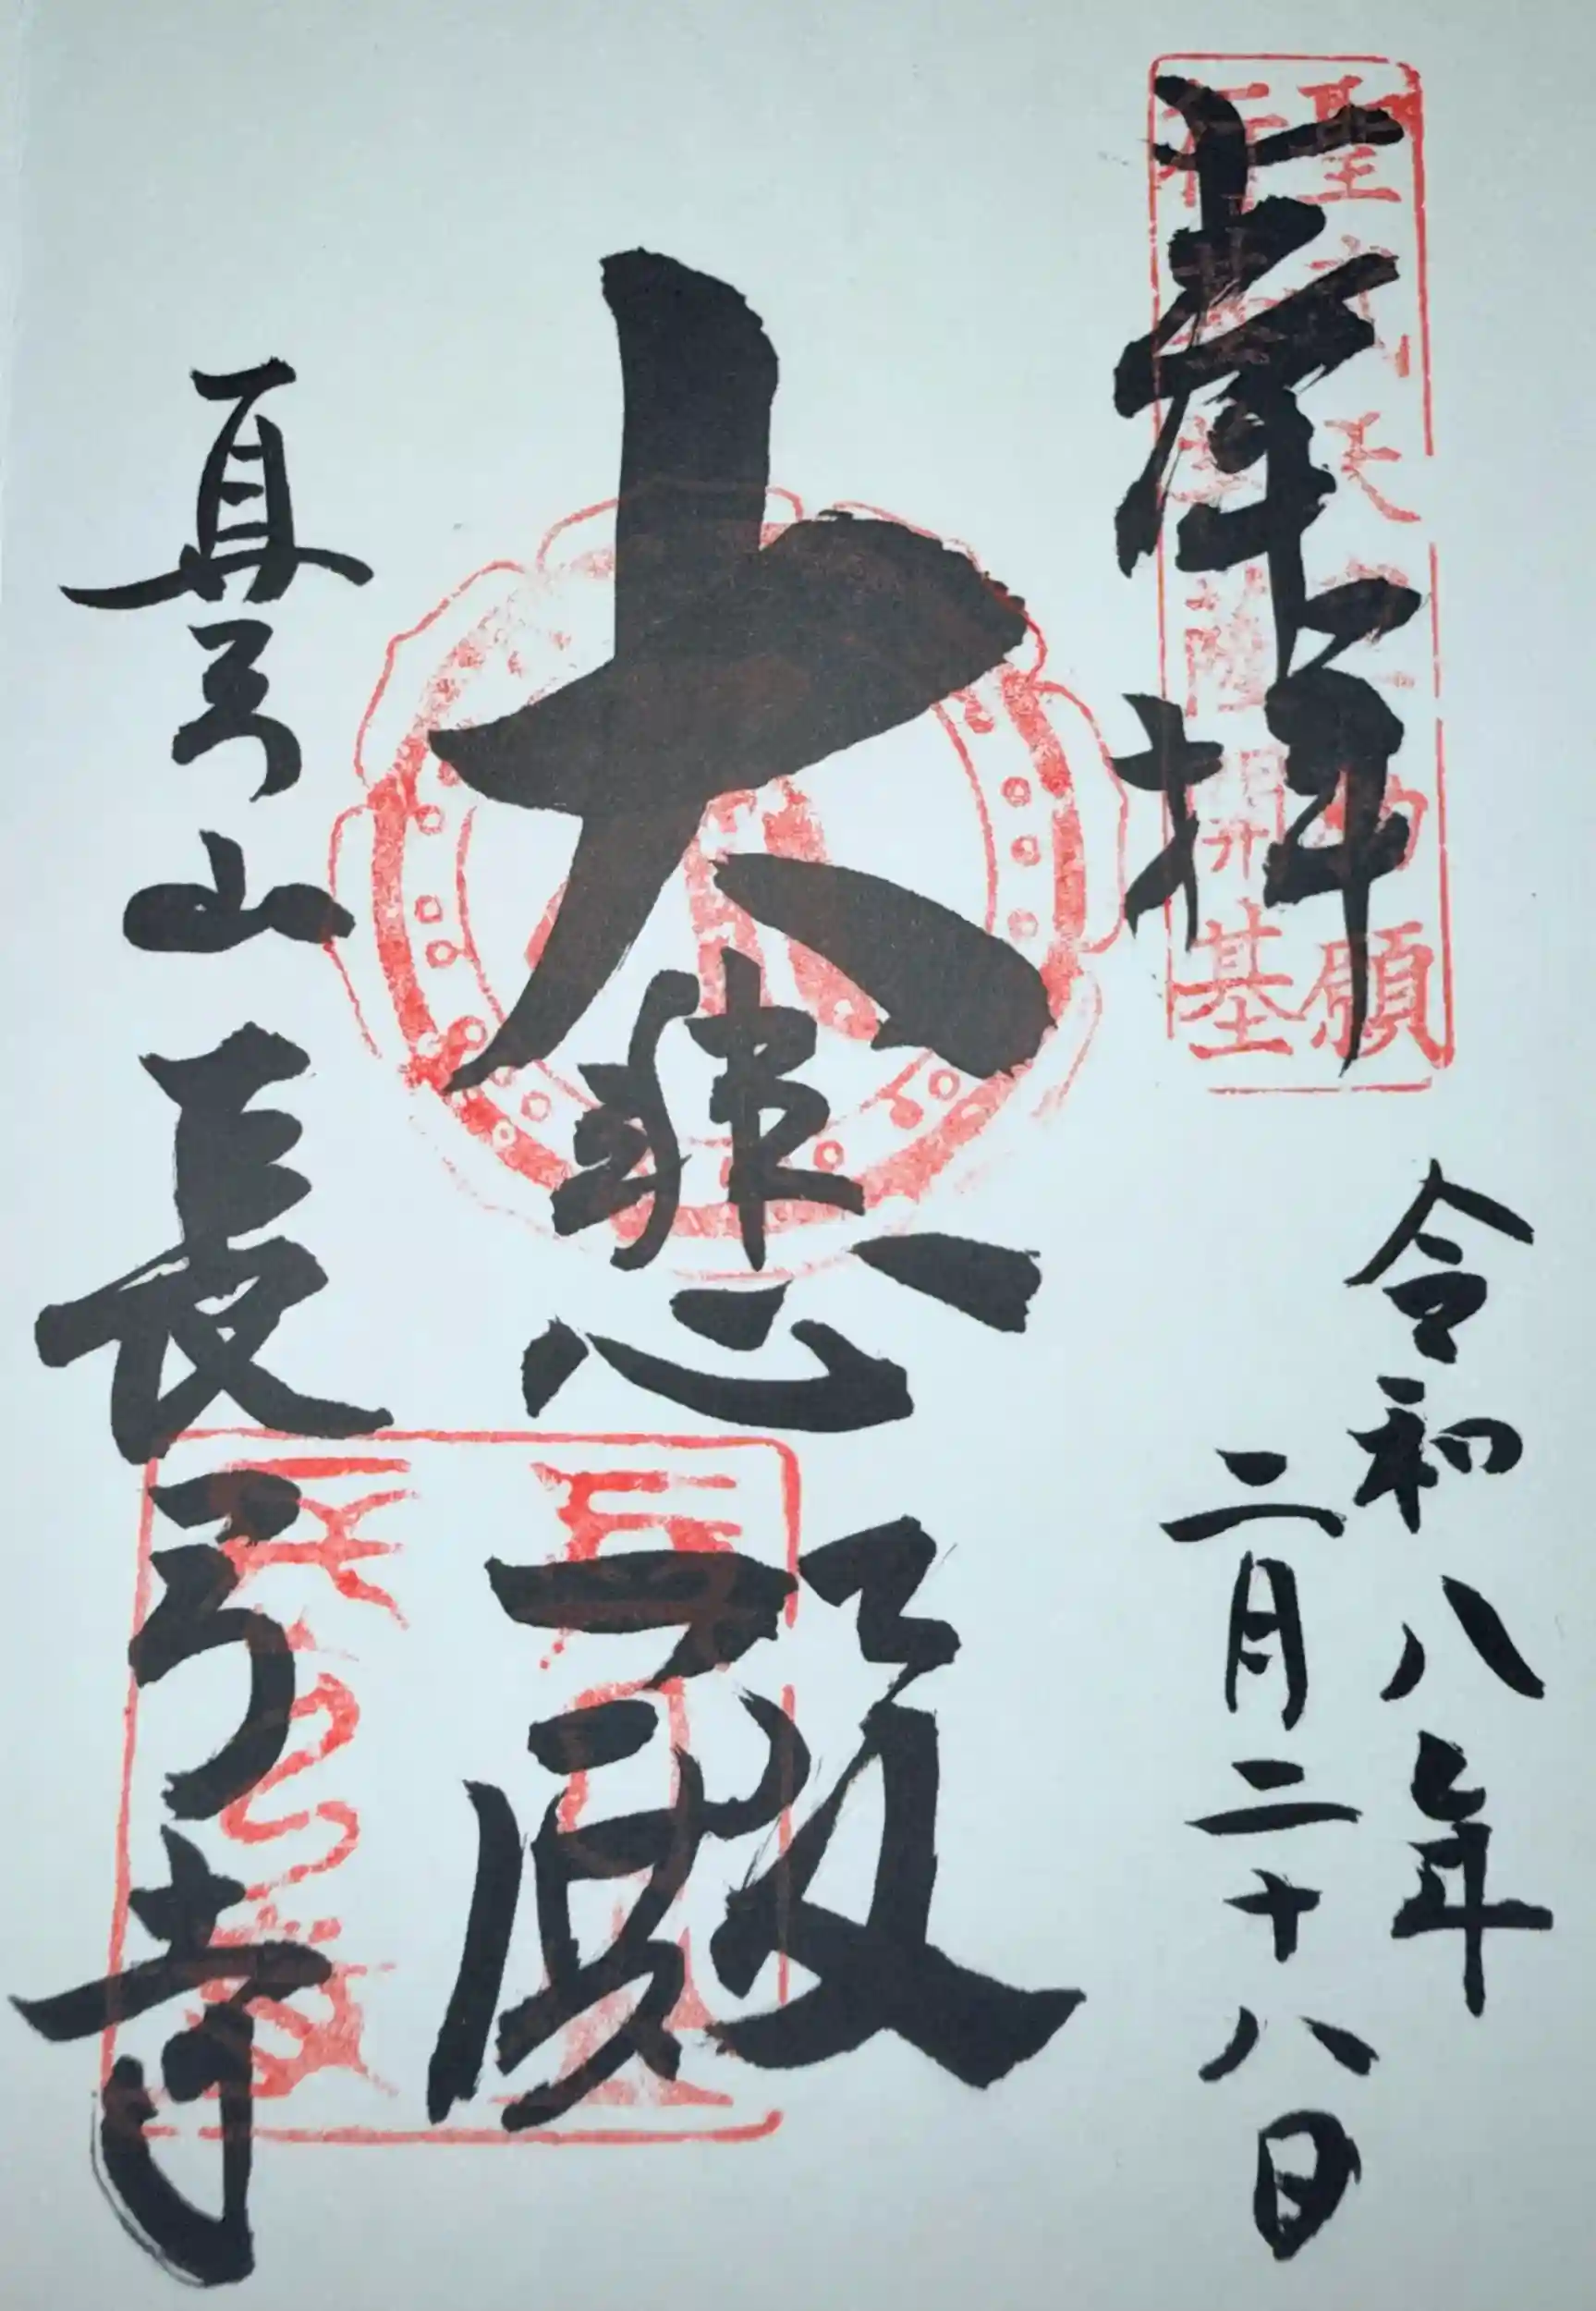 奉拝
聖武天皇勅願
行基菩薩開基
令和八年
二月二十八日
大悲殿
真弓山長弓寺